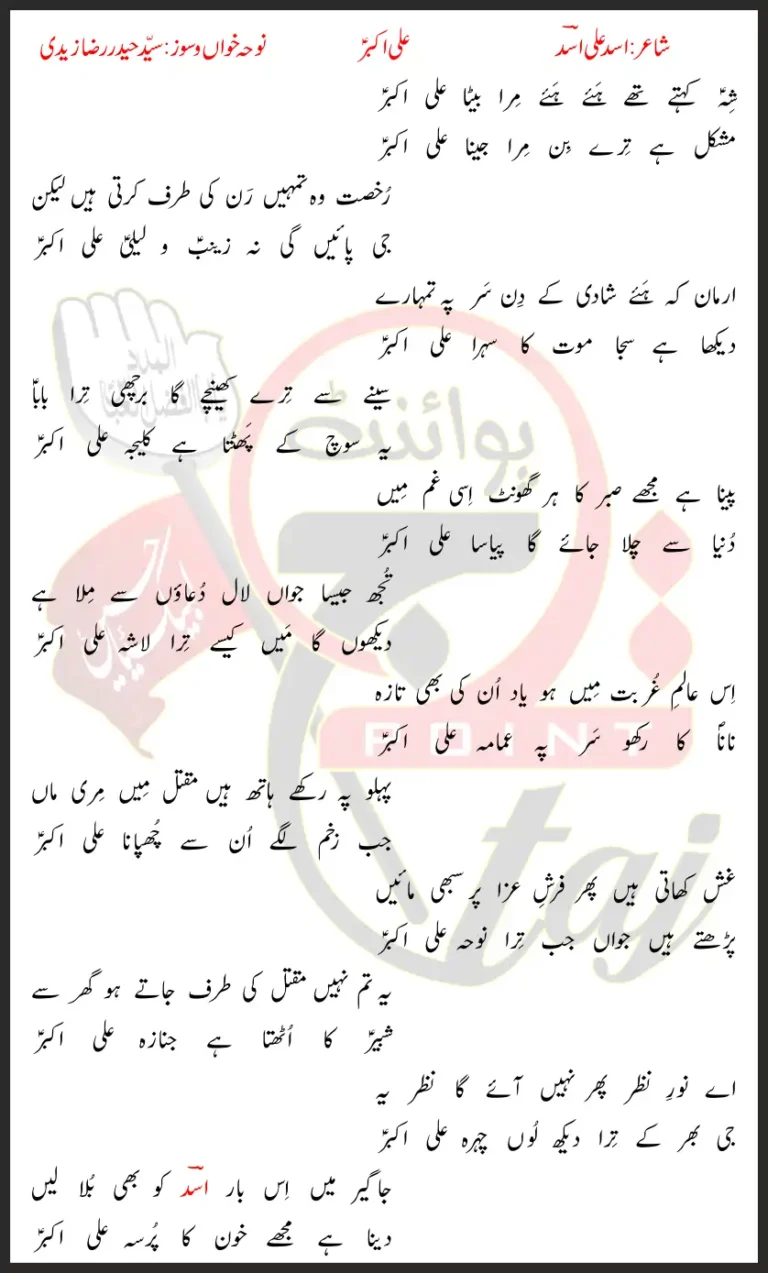 شاعر: اسد علی اسدؔ علی اکبرؑ نوحہ خواں و سوز: سیّد حیدر رضا زیدی
شہِؑ کہتے تھے ہَئے ہَئے مِرا بیٹا علی اکبرؑ
مشکل ہے تِرے بِن مِرا جینا علی اکبرؑ
رُخصت وہ تمہیں رَن کی طرف کرتی ہیں لیکن
جی پائیں گی نہ زینبؑ و لیلیٰؑ علی اکبرؑ
ارمان کہ ہَئے شادی کے دِن سَر پہ تمہارے
دیکھا ہے سجا موت کا سہرا علی اکبرؑ
سینے سے تِرے کھینچے گا برچھی تِرا باباؑ
یہ سوچ کے پَھٹتا ہے کلیجہ علی اکبرؑ
پینا ہے مجھے صبر کا ہر گھونٹ اِسی غم مِیں
دُنیا سے چلا جائے گا پیاسا علی اکبرؑ
تُجھ جیسا جواں لال دُعاؤں سے مِلا ہے
دیکھوں گا مَیں کیسے تِرا لاشہ علی اکبرؑ
اِس عالمِ غُربت مِیں ہو یاد اُن کی بھی تازہ
ناناؐ کا رکھو سَر پہ عمامہ علی اکبرؑ
پہلو پہ رکھے ہاتھ ہیں مقتل مِیں مِری ماں
جب زخم لگے اُن سے چُھپانا علی اکبرؑ
غش کھاتی ہیں پھر فرشِ عزا پر سبھی مائیں
پڑھتے ہیں جواں جب تِرا نوحہ علی اکبرؑ
یہ تم نہیں مقتل کی طرف جاتے ہو گھر سے
شبیرؑ کا اُٹھتا ہے جنازہ علی اکبرؑ
اے نورِ نظر پھر نہیں آئے گا نظر یہ
جی بھر کے تِرا دیکھ لُوں چہرہ علی اکبرؑ
جاگیر میں اِس بار اسدؔ کو بھی بُلا لیں
دینا ہے مجھے خون کا پُرسہ علی اکبرؑ
پوائنٹ
POINT
taj